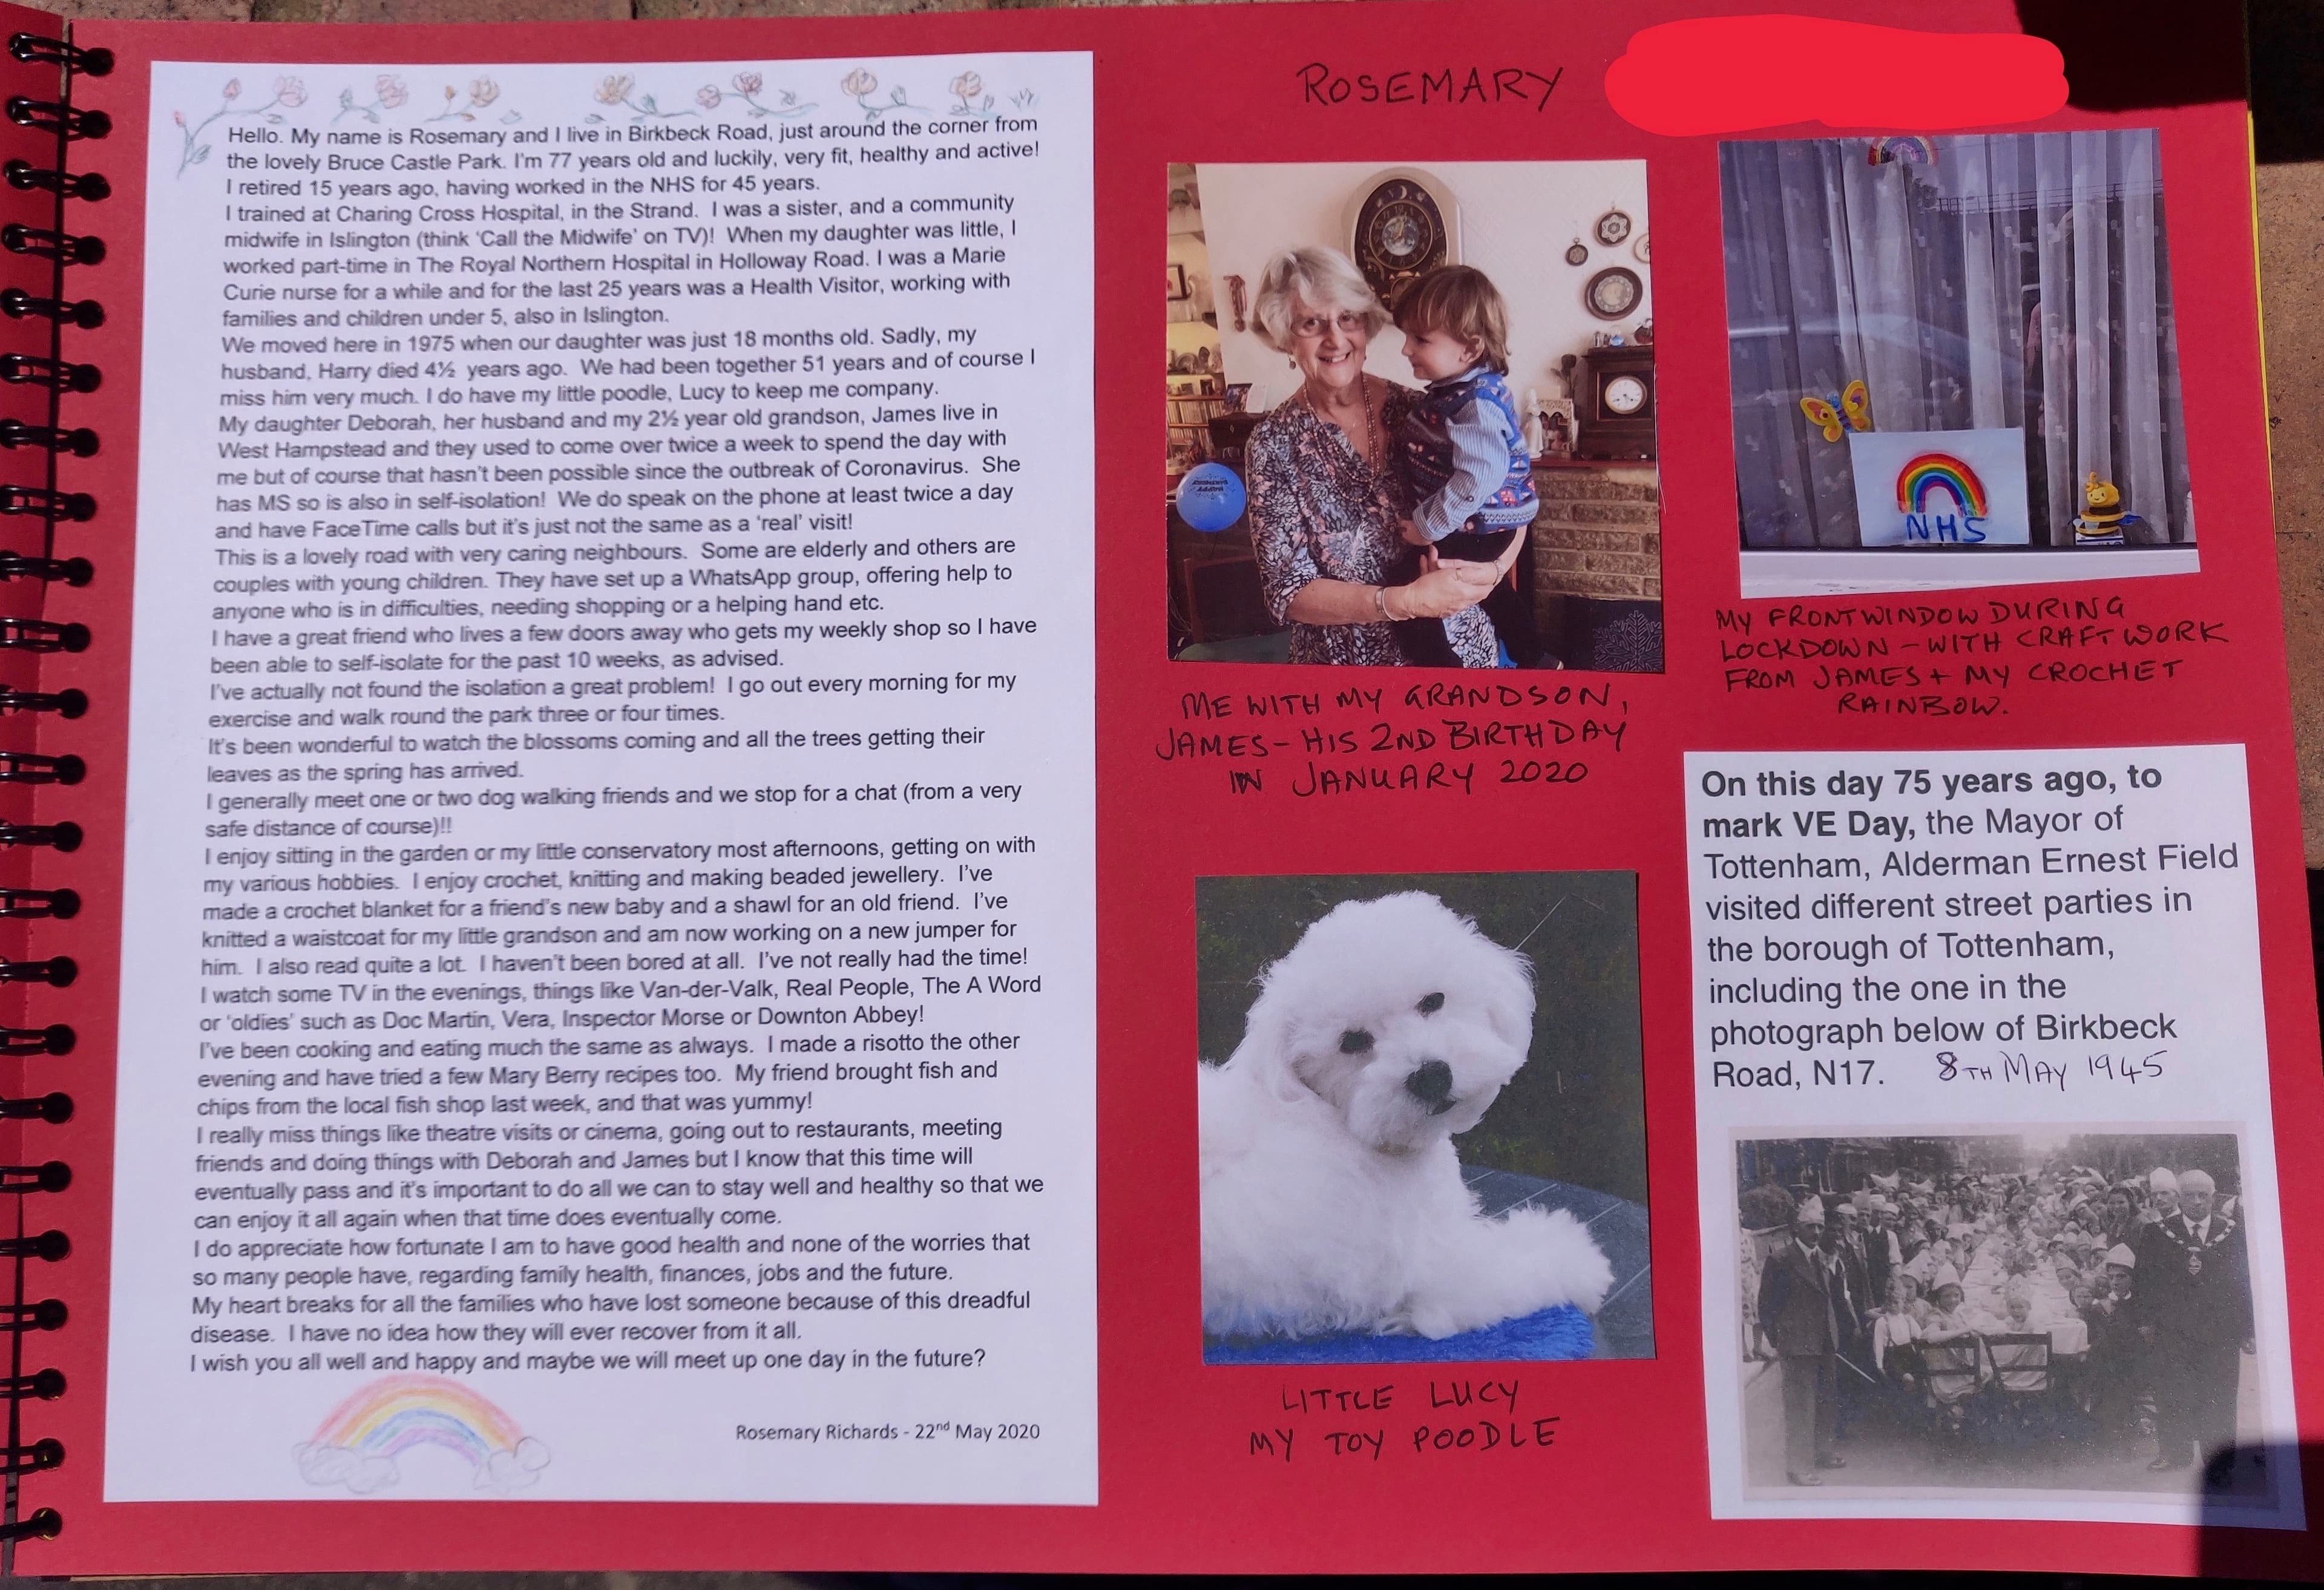 Hello. My name is Rosemary and I live in Birkbeck Road, just around the corner from
the lovely Bruce Castle Park. I'm 77 years old and luckily, very fit, healthy and active!
I retired 15 years ago, having worked in the NHS for 45 years.
I trained at Charing Cross Hospital, in the Strand. I was a sister, and a community
midwife in Islington (think 'Call the Midwife' on TV)! When my daughter was little, I
worked part-time in The Royal Northern Hospital in Holloway Road. I was a Marie
Curie nurse for a while and for the last 25 years was a Health Visitor, working with
families and children under 5, also in Islington.
We moved here in 1975 when our daughter was just 18 months old. Sadly, my
husband, Harry died 4½ years ago. We had been together 51 years and of course I
miss him very much. I do have my little poodle, Lucy to keep me company.
My daughter Deborah, her husband and my 2½ year old grandson, James live in
West Hampstead and they used to come over twice a week to spend the day with
me but of course that hasn't been possible since the outbreak of Coronavirus. She
has MS so is also in self-isolation! We do speak on the phone at least twice a day
and have FaceTime calls but it's just not the same as a 'real' visit!
This is a lovely road with very caring neighbours. Some are elderly and others are
couples with young children. They have set up a WhatsApp group, offering help to
anyone who is in difficulties, needing shopping or a helping hand etc.
I have a great friend who lives a few doors away who gets my weekly shop so I have
been able to self-isolate for the past 10 weeks, as advised.
I've actually not found the isolation a great problem! I go out every morning for my
exercise and walk round the park three or four times.
It's been wonderful to watch the blossoms coming and all the trees getting their
leaves as the spring has arrived.
I generally meet one or two dog walking friends and we stop for a chat (from a very
safe distance of course)!!
I enjoy sitting in the garden or my little conservatory most afternoons, getting on with
my various hobbies. I enjoy crochet, knitting and making beaded jewellery. I've
made a crochet blanket for a friend's new baby and a shawl for an old friend. I've
knitted a waistcoat for my little grandson and am now working on a new jumper for
him. I also read quite a lot. I haven't been bored at all. I've not really had the time!
I watch some TV in the evenings, things like Van-der-Valk, Real People, The A Word
or 'oldies' such as Doc Martin, Vera, Inspector Morse or Downton Abbey!
I've been cooking and eating much the same as always. I made a risotto the other
evening and have tried a few Mary Berry recipes too. My friend brought fish and
chips from the local fish shop last week, and that was yummy!
I really miss things like theatre visits or cinema, going out to restaurants, meeting
friends and doing things with Deborah and James but I know that this time will
eventually pass and it's important to do all we can to stay well and healthy so that we
can enjoy it all again when that time does eventually come.
I do appreciate how fortunate I am to have good health and none of the worries that
so many people have, regarding family health, finances, jobs and the future.
My heart breaks for all the families who have lost someone because of this dreadful
disease. I have no idea how they will ever recover from it all.
I wish you all well and happy and maybe we will meet up one day in the future?
Rosemary Richards - 22nd May 2020
ROSEMARY
ME WITH MY GRANDSON,
JAMES - HIS 2ND BIRTHDAY
IN JANUARY 2020
NHS
MY FRONT WINDOW DURING
LOCKDOWN - WITH CRAFT WORK
FROM JAMES + MY CROCHET
RAINBOW.
LITTLE LUCY
MY TOY POODLE
On this day 75 years ago, to
mark VE Day, the Mayor of
Tottenham, Alderman Ernest Field
visited different street parties in
the borough of Tottenham,
including the one in the
photograph below of Birkbeck
Road, N17. 8TH MAY 1945